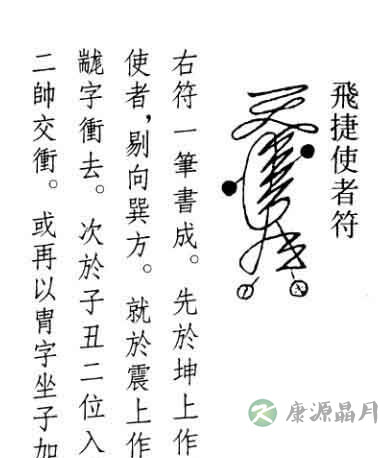 飛捷使者符
右符一筆書成。先於坤上作
使者，剔向巽方。就於震上作
衝去。次於子丑二位入
二帥交衝。或再以冑字坐子加
康源晶月